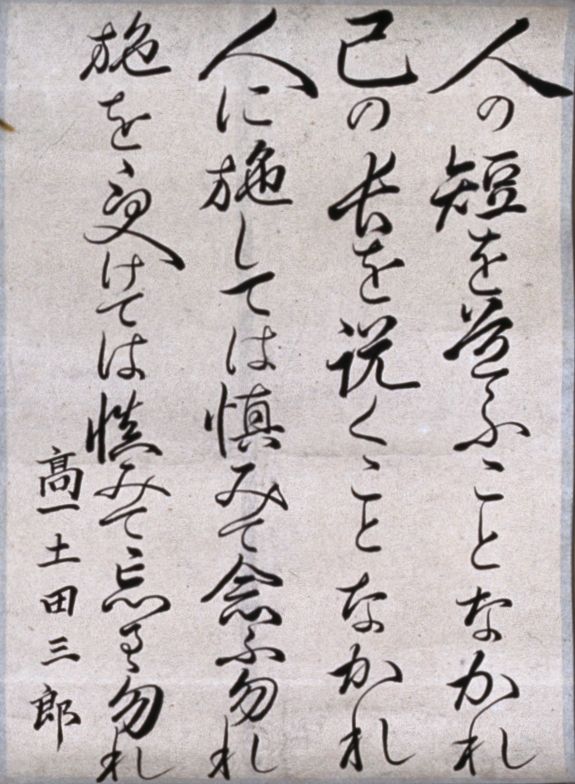 人の短を道ふことなかれ
己の長を説くことなかれ
人に施しては慎みて念ふ勿れ
施を受けては慎みて忘る勿れ
高一土田三郎